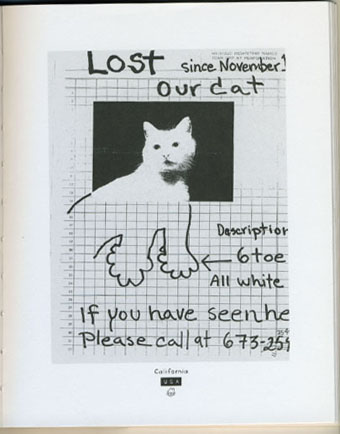 LOST since November!
our cat
Description
6toe
All white
If you have seen he
Please call at 673-25
California
USA